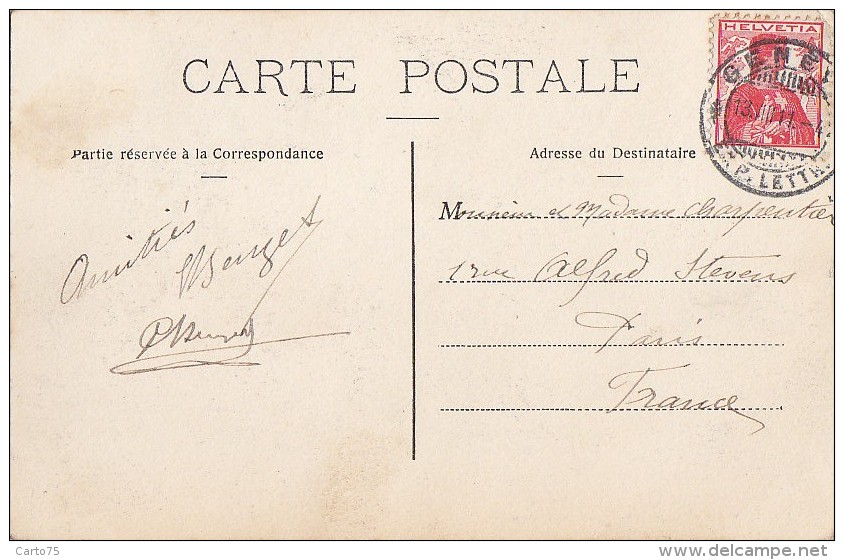 CARTE POSTALE
HELVETIA
GENÈV
13. III 11. - 4
P. LETTR
Partie réservée à la Correspondance
Adresse du Destinataire
Amitiés
Monsieur et Madame Charpentier
1 rue Alfred Stevens
Paris
France
Carto75
www.delcampe.net